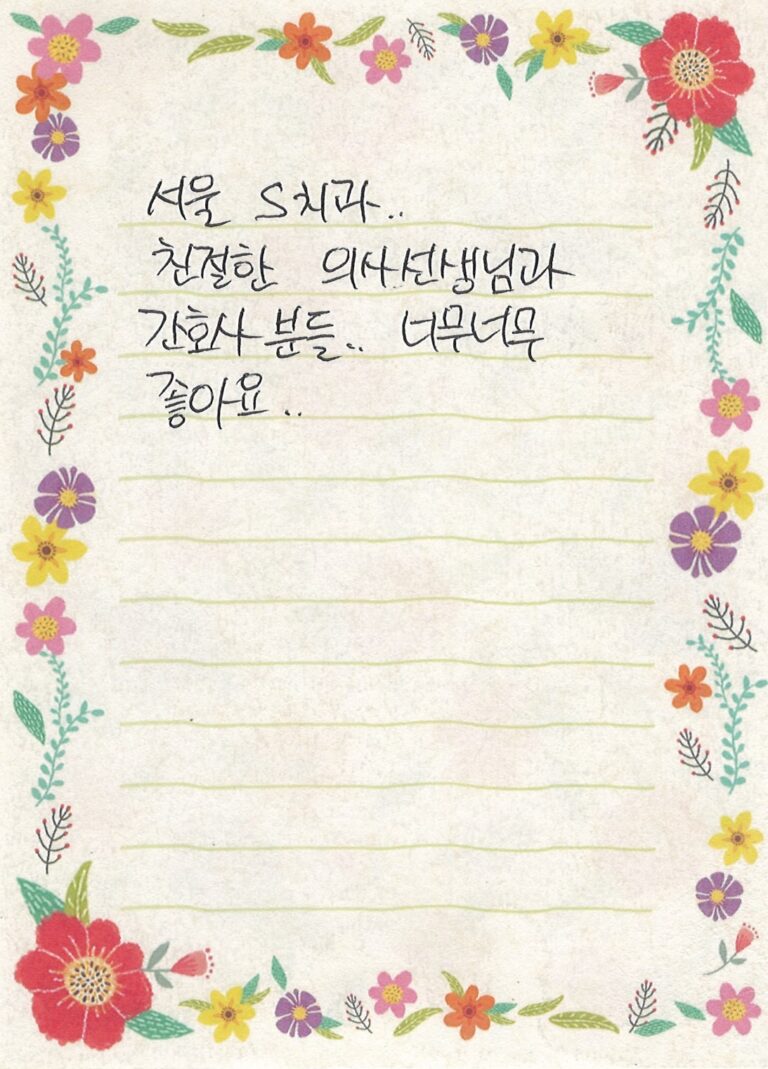 서울 S치과..
친절한 의사선생님과
간호사 분들.. 너무너무
좋아요..